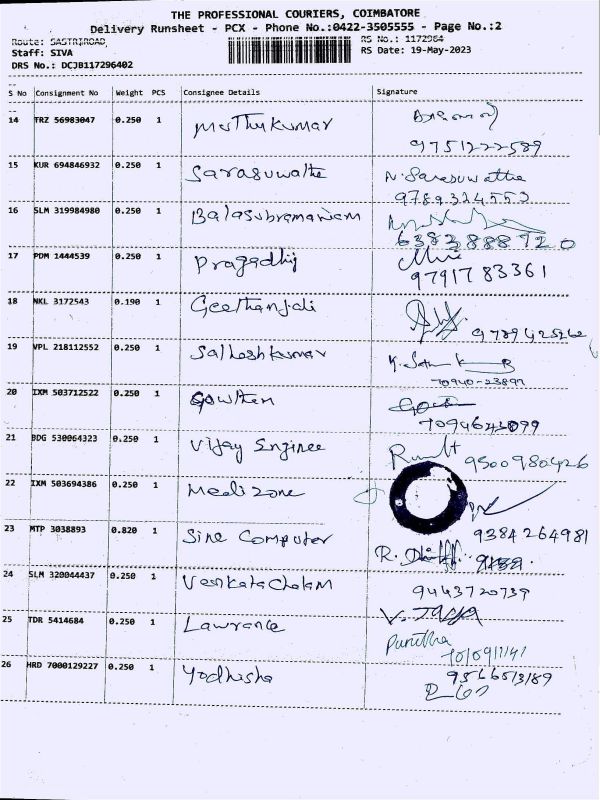 THE PROFESSIONAL COURIERS, COIMBATORE
Delivery Runsheet - PCX - Phone No.:0422-3505555 - Page No.:2
Route: SASTRIROAD RS No.: 1172964
Staff: SIVA RS Date: 19-May-2023
DRS No.: DCJB117296402
S No Consignment No Weight PCS Consignee Details Signature
14 TRZ 56983047 0.250 1 Muthukumar
9751222589
15 KUR 694846932 0.250 1 Sarasuwathe N. Sarasuwathe
9789324553
16 SLM 319984980 0.250 1 Balasubramaniam
6383888920
17 PDM 1444539 0.250 1 Pragadhij
9791783361
18 NKL 3172543 0.190 1 Geethanjali
19 VPL 218112552 0.250 1 Satheshkumar
70940-23897
20 IXM 503712522 0.250 1 Gowthem
21 BDG 530064323 0.250 1 Vijay Enginee
9500980426
22 IXM 503694386 0.250 1 Medizone
9384264981
23 MTP 3038893 0.820 1 Sine Computer
24 SLM 320044437 0.250 1 Venkatachalam 9443720739
25 TDR 5414684 0.250 1 Lawrance Punitha
26 HRD 7000129227 0.250 1 Yodhisha